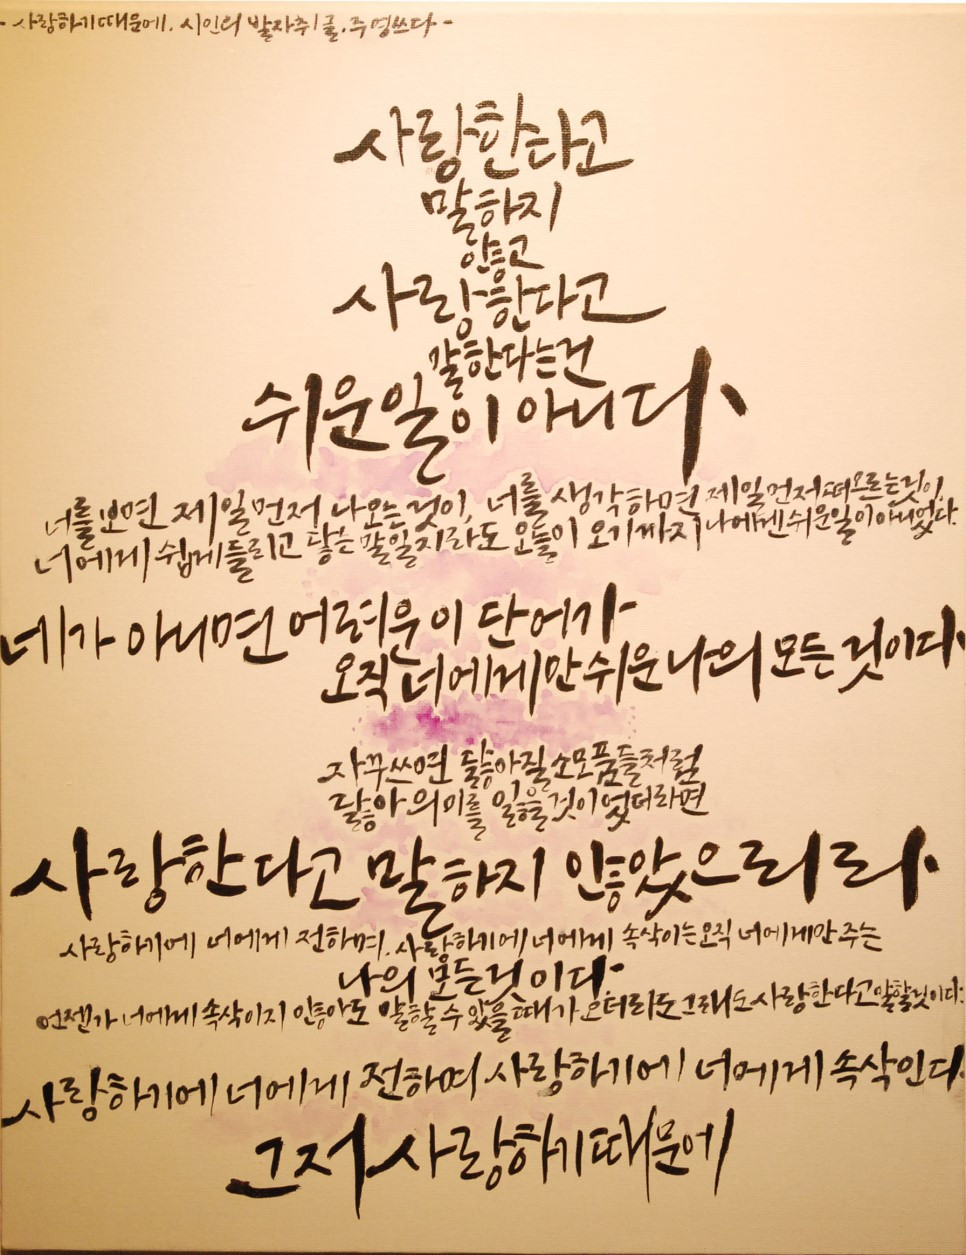 - 사랑하기때문에. 시인의 발자취 글. 주영쓰다 -
사랑한다고
말하지
않고
사랑한다고
말한다는건
쉬운일이 아니다.
너를보면 제일먼저 나오는것이, 너를 생각하면 제일먼저떠오르는것이,
너에게 쉽게들리고 닿는 말일지라도 오롯이 오기까지 나에겐쉬운일이아니었다.
네가 아니면 어려운 이 단어가
오직 너에게만 쉬운 나의 모든 것이다.
자꾸쓰면 닳아질소모품들처럼
닳아 의미를 잃을것이었더라면
사랑한다고 말하지 않았으리라.
사랑하기에 너에게 전하며, 사랑하기에 너에게 속삭이는오직 너에게만 주는
나의 모든것이다.
언젠가 너에게 속삭이지 않아도 말할수 있을때가 오더라도 그래도 사랑한다고말할것이다.
사랑하기에 너에게 전하며 사랑하기에 너에게 속삭인다.
그저 사랑하기때문에